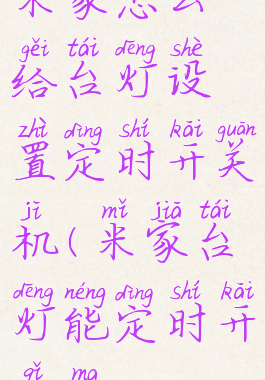 米家怎么
gěi tái dēng shè
给台灯设
zhì dìng shí kāi guān
置定时开关
jī mǐ jiā tái
机(米家台
dēng néng dìng shí kāi
灯能定时开
qǐ ma